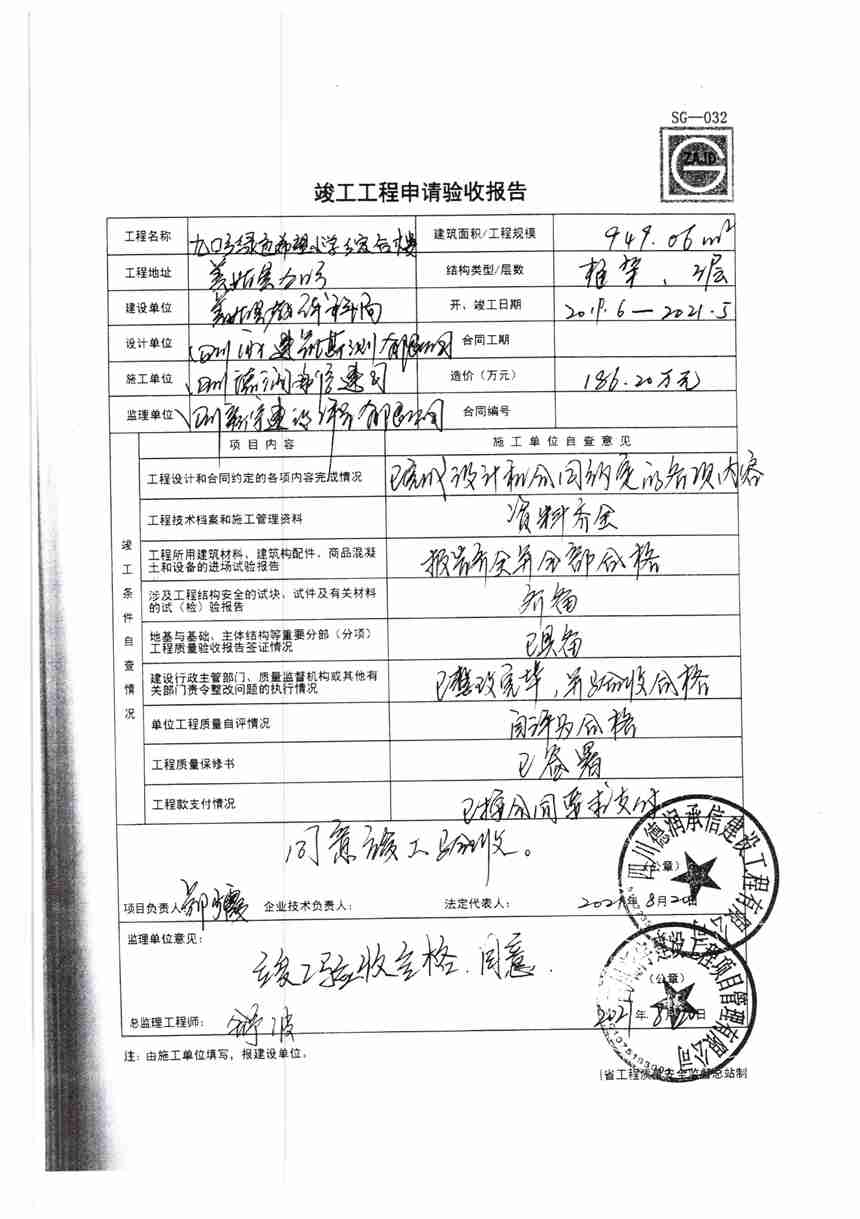 SG—032
ZAJD
竣工工程申请验收报告
工程名称 九口乡绿色希望小学综合楼 建筑面积/工程规模 949.06m²
工程地址 美姑县九口乡 结构类型/层数 框架、2层
建设单位 美姑县 开、竣工日期 2019.6—2021.5
设计单位 四川 有限公司 合同工期
施工单位 四川德润承信建 造价（万元） 186.20万元
监理单位 四川 有限公司 合同编号
项目内容 施工单位自查意见
竣工条件自查情况
工程设计和合同约定的各项内容完成情况 已完成设计和合同约定的各项内容
工程技术档案和施工管理资料 资料齐全
工程所用建筑材料、建筑构配件、商品混凝 报告齐全并全部合格
土和设备的进场试验报告
涉及工程结构安全的试块、试件及有关材料 齐备
的试（检）验报告
地基与基础、主体结构等重要分部（分项） 已具备
工程质量验收报告签证情况
建设行政主管部门、质量监督机构或其他有 已整改完毕，并验收合格
关部门责令整改问题的执行情况
单位工程质量自评情况 自评为合格
工程质量保修书 已签署
工程款支付情况 已按合同要求支付
同意竣工验收。
四川德润承信建设工程有限公司
（公章）
项目负责人 企业技术负责人： 法定代表人： 2021年8月20日
监理单位意见：
竣工验收合格.同意.
建设工程项目管理有限公司
（公章）
总监理工程师： 2021年8月20日
注：由施工单位填写，报建设单位。
省工程质量安全监督总站制